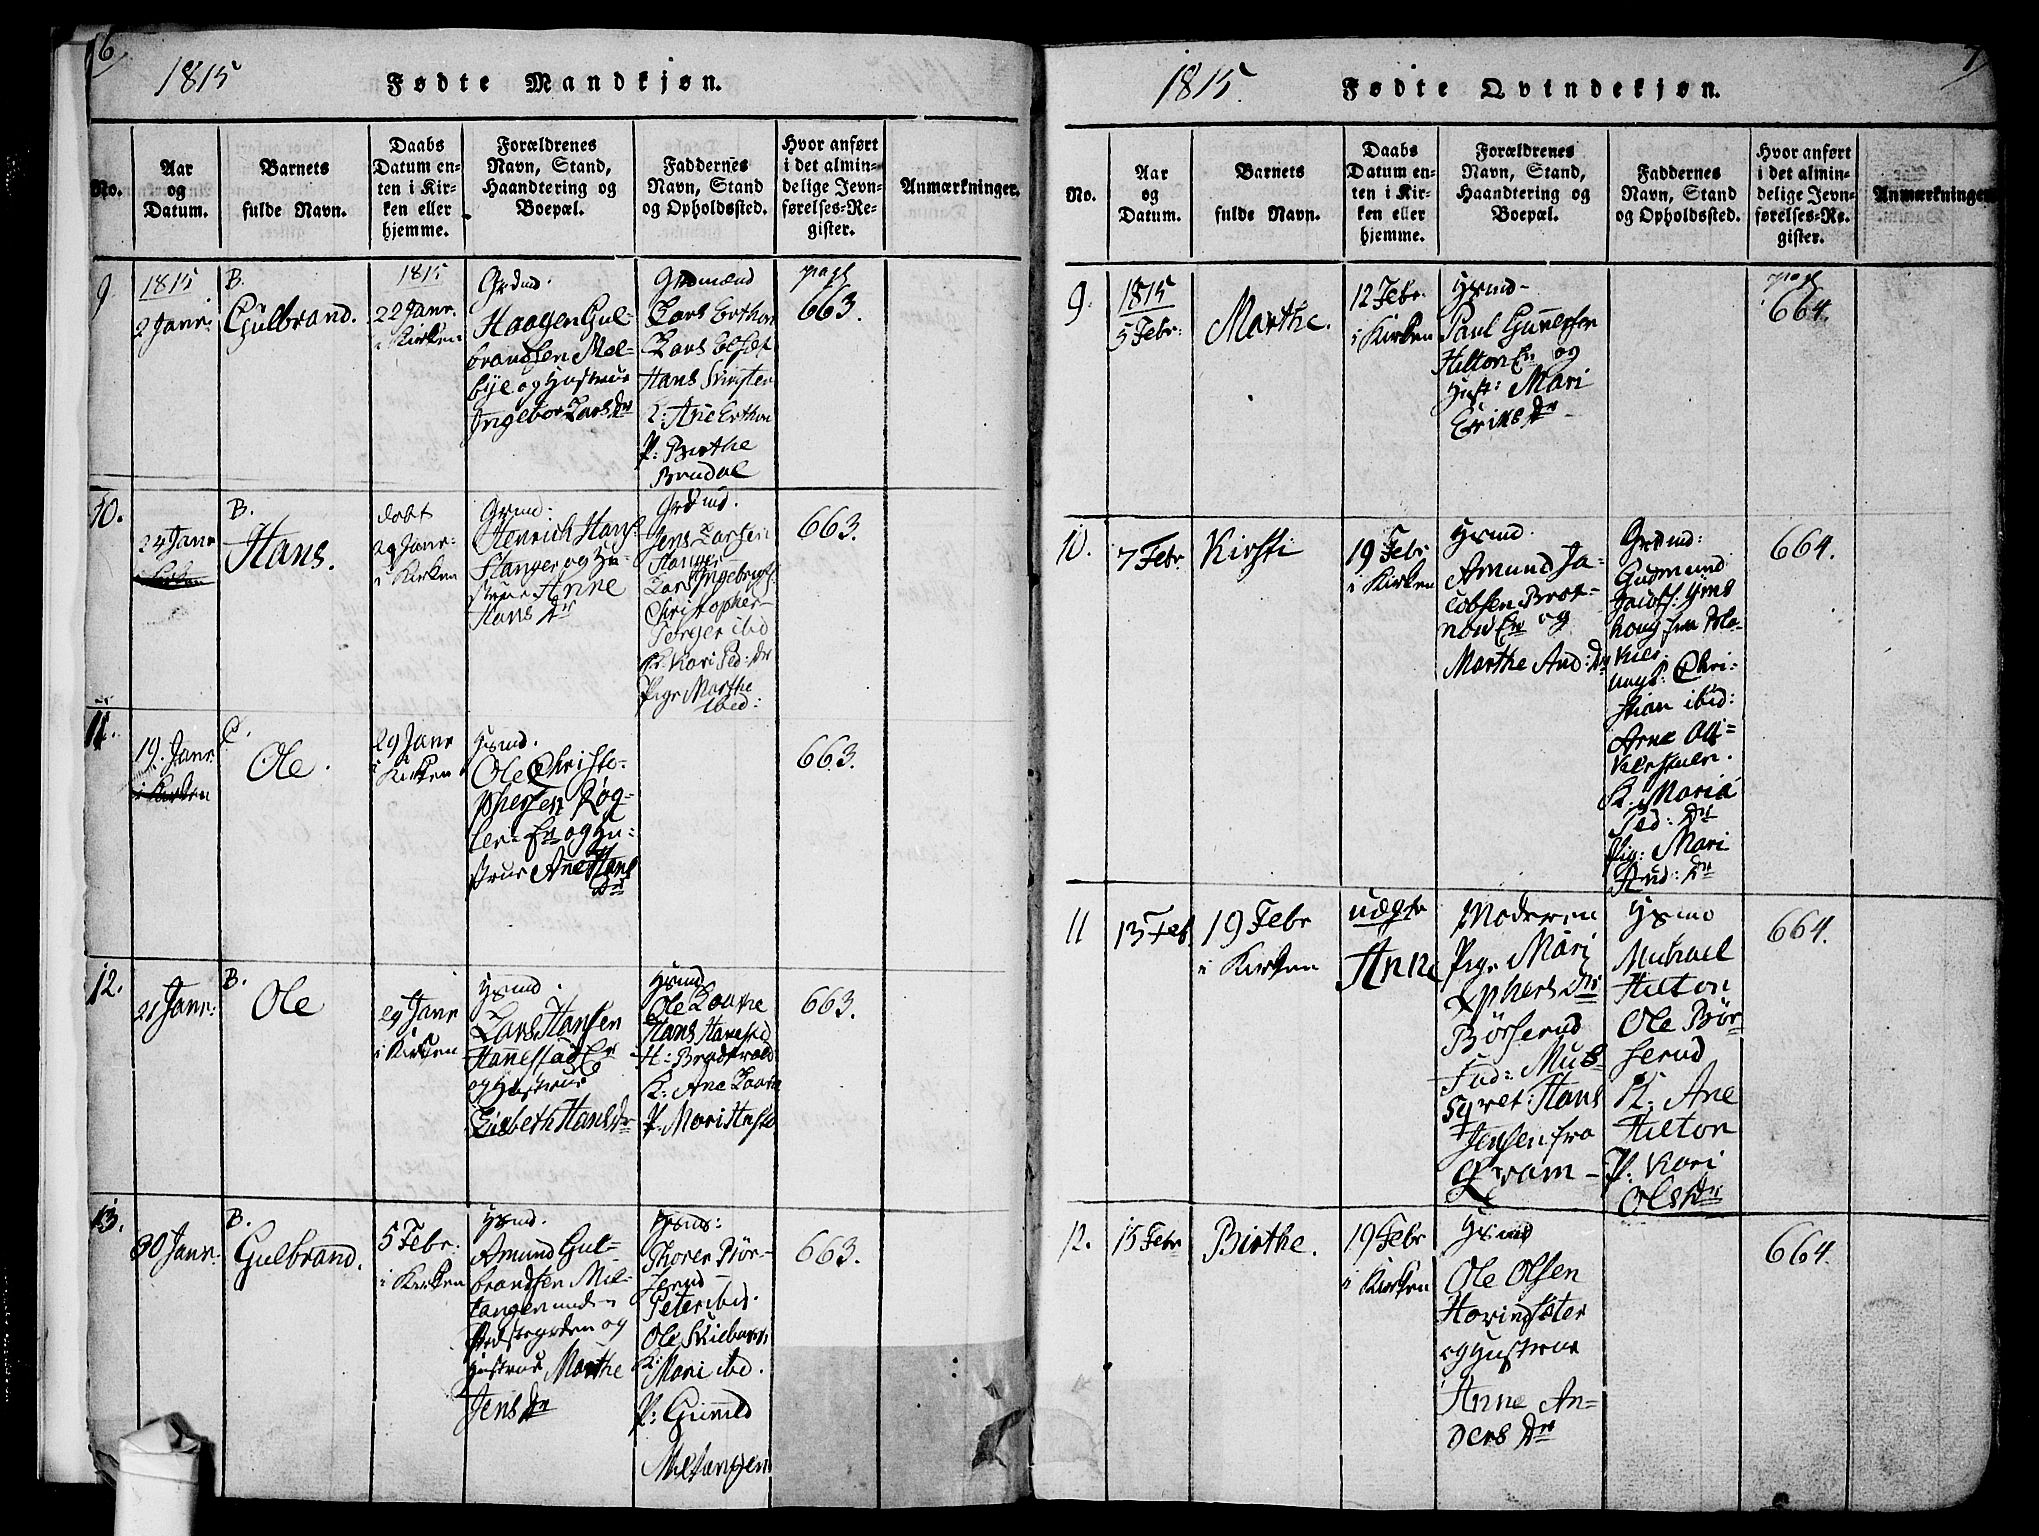 6
1815
Fødte Mandkjøn.
No.
Aar
og
Datum.
Barnets
fulde Navn.
Daabs
Datum en-
ten i Kir-
ken eller
hjemme.
Forældrenes
Navn, Stand,
Haandtering og
Boepæl.
Faddernes
Navn, Stand
og Opholdssted.
Hvor anført
i det almin-
delige Jevn-
førelses-Re-
gister.
Anmærkninger.
9.
1815
2 Janr.
B.
Gulbrand.
1815
22 Janr.
i Kirken
Grdmd.
Haagen Gul-
brandsen Mel-
bye og Hustrue
Ingebor Lars Dr
Grdmænd
Lars Erthon
Lars
Hans
K: Ane Erthon
P: Birthe
Brudal
pag
663.
10.
24 Janr
i Kirken
B.
Hans.
døbt
29 Janr.
i Kirken
Grmd.
Henrich Hans.
Stanger og Hu-
strue Anne
Hans Dr
Grdmd.
Jens Larsen
Stanger
Lars Ingebrigts.
Christopher
Torger ibid
K: Kari Ped: Dr
Pige Marthe
ibid:
663.
11.
19. Janr
i Kirken
C.
Ole.
29 Janr
i Kirken
Hsmd.
Ole Christo-
phersen Røg-
ler-Er og Hu-
strue Ane Hans
Dr
663.
12.
21 Janr.
B.
Ole
29 Janr
i Kirken
Hsmd.
Lars Hansen
Hannestad Er
og Hustrue
Lisbeth Hans Dr
Hsmd
Ole Laache
Hans Hanestd
H: Bradvold
K: Ane Laache
P: Mari Hnstd
663.
13.
30 Janr.
B.
Gulbrand.
5 Febr.
i Kirken
Hsmd.
Amund Gul-
brandsen Mil-
tangen und-
Prestegrden og
Hustrue Marthe
Jens Dr
Hsmd:
Thorer Bør-
serud
Peter ibid.
Ole Skiebarn
K: Mari ibd.
P: Gunnild
Meltangen
663.
7
1815.
Fødte Qvindekjøn.
No.
Aar
og
Datum.
Barnets
fulde Navn.
Daabs
Datum en-
ten i Kir-
ken eller
hjemme.
Forældrenes
Navn, Stand,
Haandtering og
Boepæl.
Faddernes
Navn, Stand
og Opholdssted.
Hvor anført
i det almin-
delige Jevn-
førelses-Re-
gister.
Anmærkninger
9.
1815
5 Febr:
Marthe.
12 Febr.
i Kirken
Hsmd-
Paul Gunersen
Hilton Er og
Hust: Mari
Eriks Dr
pag
664.
10.
7 Febr
Kirsti
19 Febr
i Kirken
Hsmd.
Amund Ja-
cobsen Brot-
now Er og
Marthe And: Dr
Grdmd:
Gudmund
Jacobs:
fra Blø-
kier.
Ungk: Chri-
stian ibid:
Arne
K: Maria
Ped: Dr
Pig: Mari
And: Dr
664.
11
13 Feb
19 Febr
i Kirken
uægte
Anne
Moderen
Pige Mari
Dr
Børserud
Fad: Mus-
gvet: Hans
Jensen fra
Qvam-
Hsmd
Michael
Hilton
Ole Bør-
serud
K: Ane
Hilton
P. Kari
Ols Dr
664.
12.
15 Febr
Birthe.
19 Febr
i Kirken
Hsmd
Ole Olsen
Hovindsæter
og Hustrue
Anne An-
ders Dr
664.